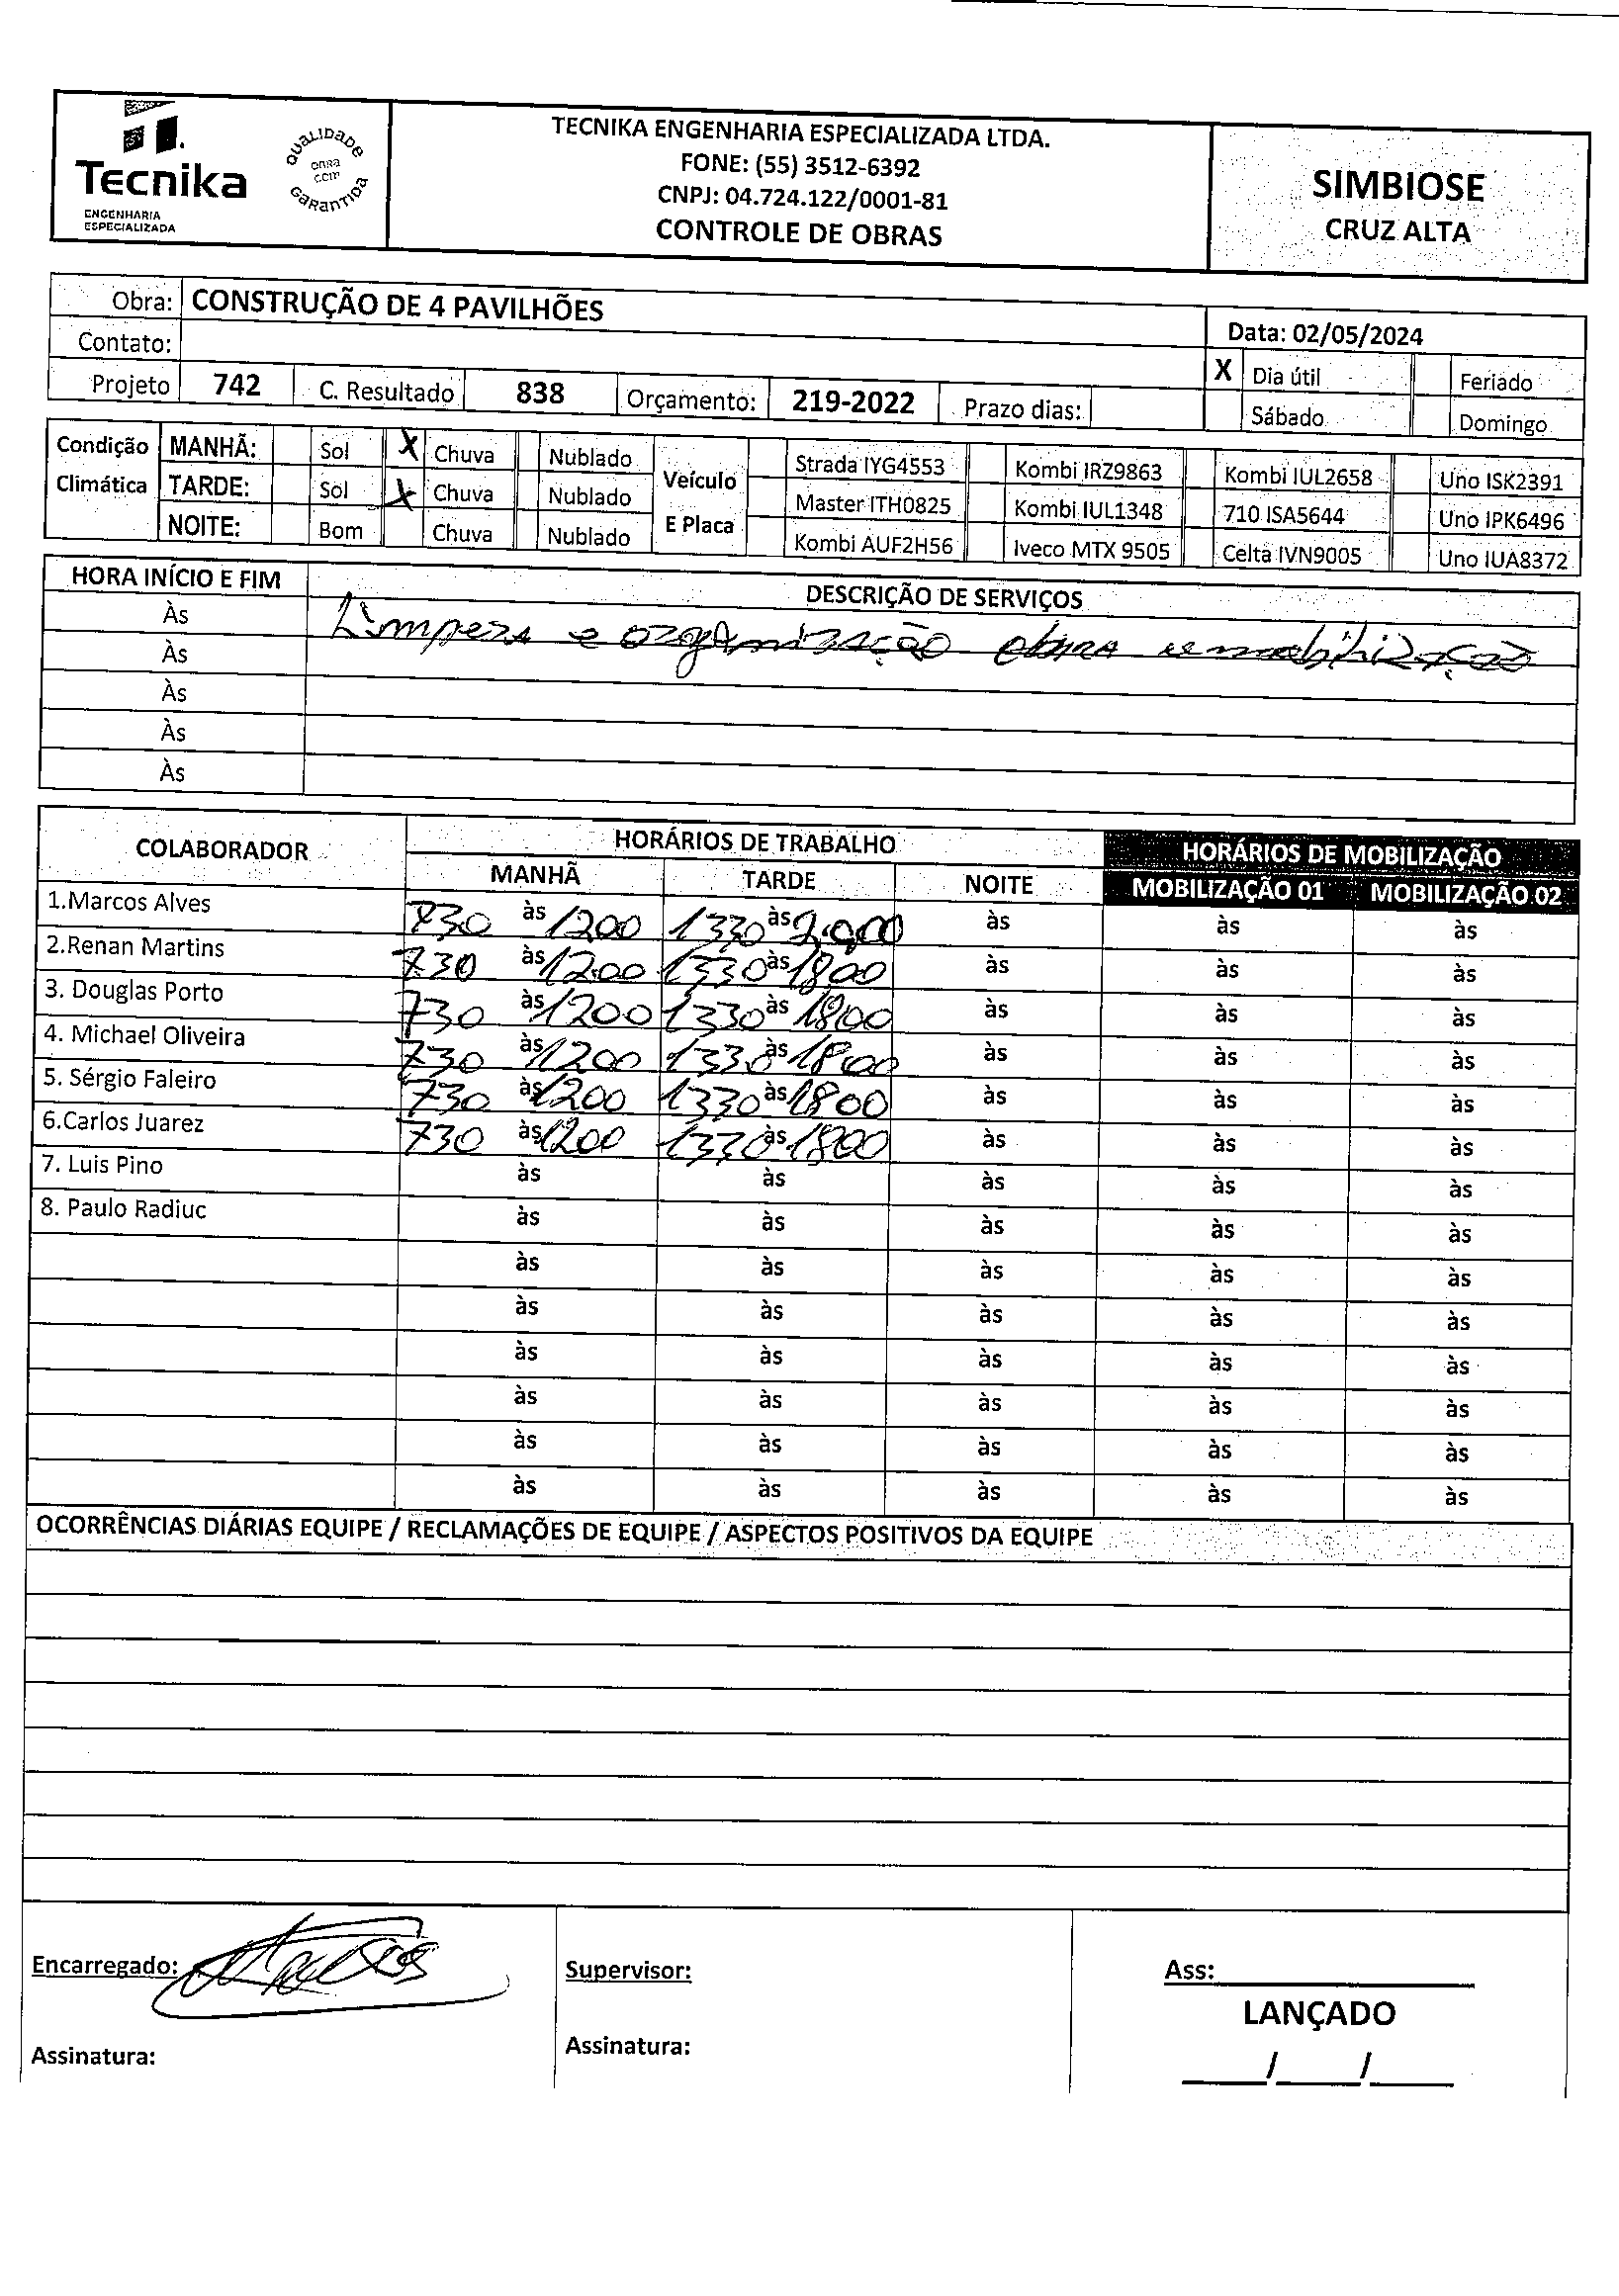 Tecnika
ENGENHARIA
ESPECIALIZADA
QUALIDADE
GARANTIDA
TECNIKA ENGENHARIA ESPECIALIZADA LTDA.
FONE: (55) 3512-6392
CNPJ: 04.724.122/0001-81
CONTROLE DE OBRAS
SIMBIOSE
CRUZ ALTA
Obra: CONSTRUÇÃO DE 4 PAVILHÕES
Data: 02/05/2024
Contato:
X Dia útil Feriado
Projeto 742 C. Resultado 838 Orçamento: 219-2022 Prazo dias:
Sábado Domingo
Condição Climática
MANHÃ: Sol X Chuva Nublado
TARDE: Sol X Chuva Nublado
NOITE: Bom Chuva Nublado
Veículo E Placa
Strada IYG4553 Kombi IRZ9863 Kombi IUL2658 Uno ISK2391
Master ITH0825 Kombi IUL1348 710 ISA5644 Uno IPK6496
Kombi AUF2H56 Iveco MTX 9505 Celta IVN9005 Uno IUA8372
HORA INÍCIO E FIM DESCRIÇÃO DE SERVIÇOS
Às Limpeza e organização obra
Às
Às
Às
Às
COLABORADOR HORÁRIOS DE TRABALHO HORÁRIOS DE MOBILIZAÇÃO
MANHÃ TARDE NOITE MOBILIZAÇÃO 01 MOBILIZAÇÃO 02
1.Marcos Alves 730 às 1200 1330 às às às às
2.Renan Martins 730 às 1200 1330 às 1800 às às às
3. Douglas Porto 730 às 1200 1330 às 1800 às às às
4. Michael Oliveira 730 às 1200 1330 às 1800 às às às
5. Sérgio Faleiro 730 às 1200 1330 às 1800 às às às
6.Carlos Juarez 730 às 1200 1330 às 1800 às às às
7. Luis Pino às às às às às
8. Paulo Radiuc às às às às às
às às às às às
às às às às às
às às às às às
às às às às às
às às às às às
às às às às às
OCORRÊNCIAS DIÁRIAS EQUIPE / RECLAMAÇÕES DE EQUIPE / ASPECTOS POSITIVOS DA EQUIPE
Encarregado: Supervisor: Ass:
LANÇADO
Assinatura: Assinatura: / /